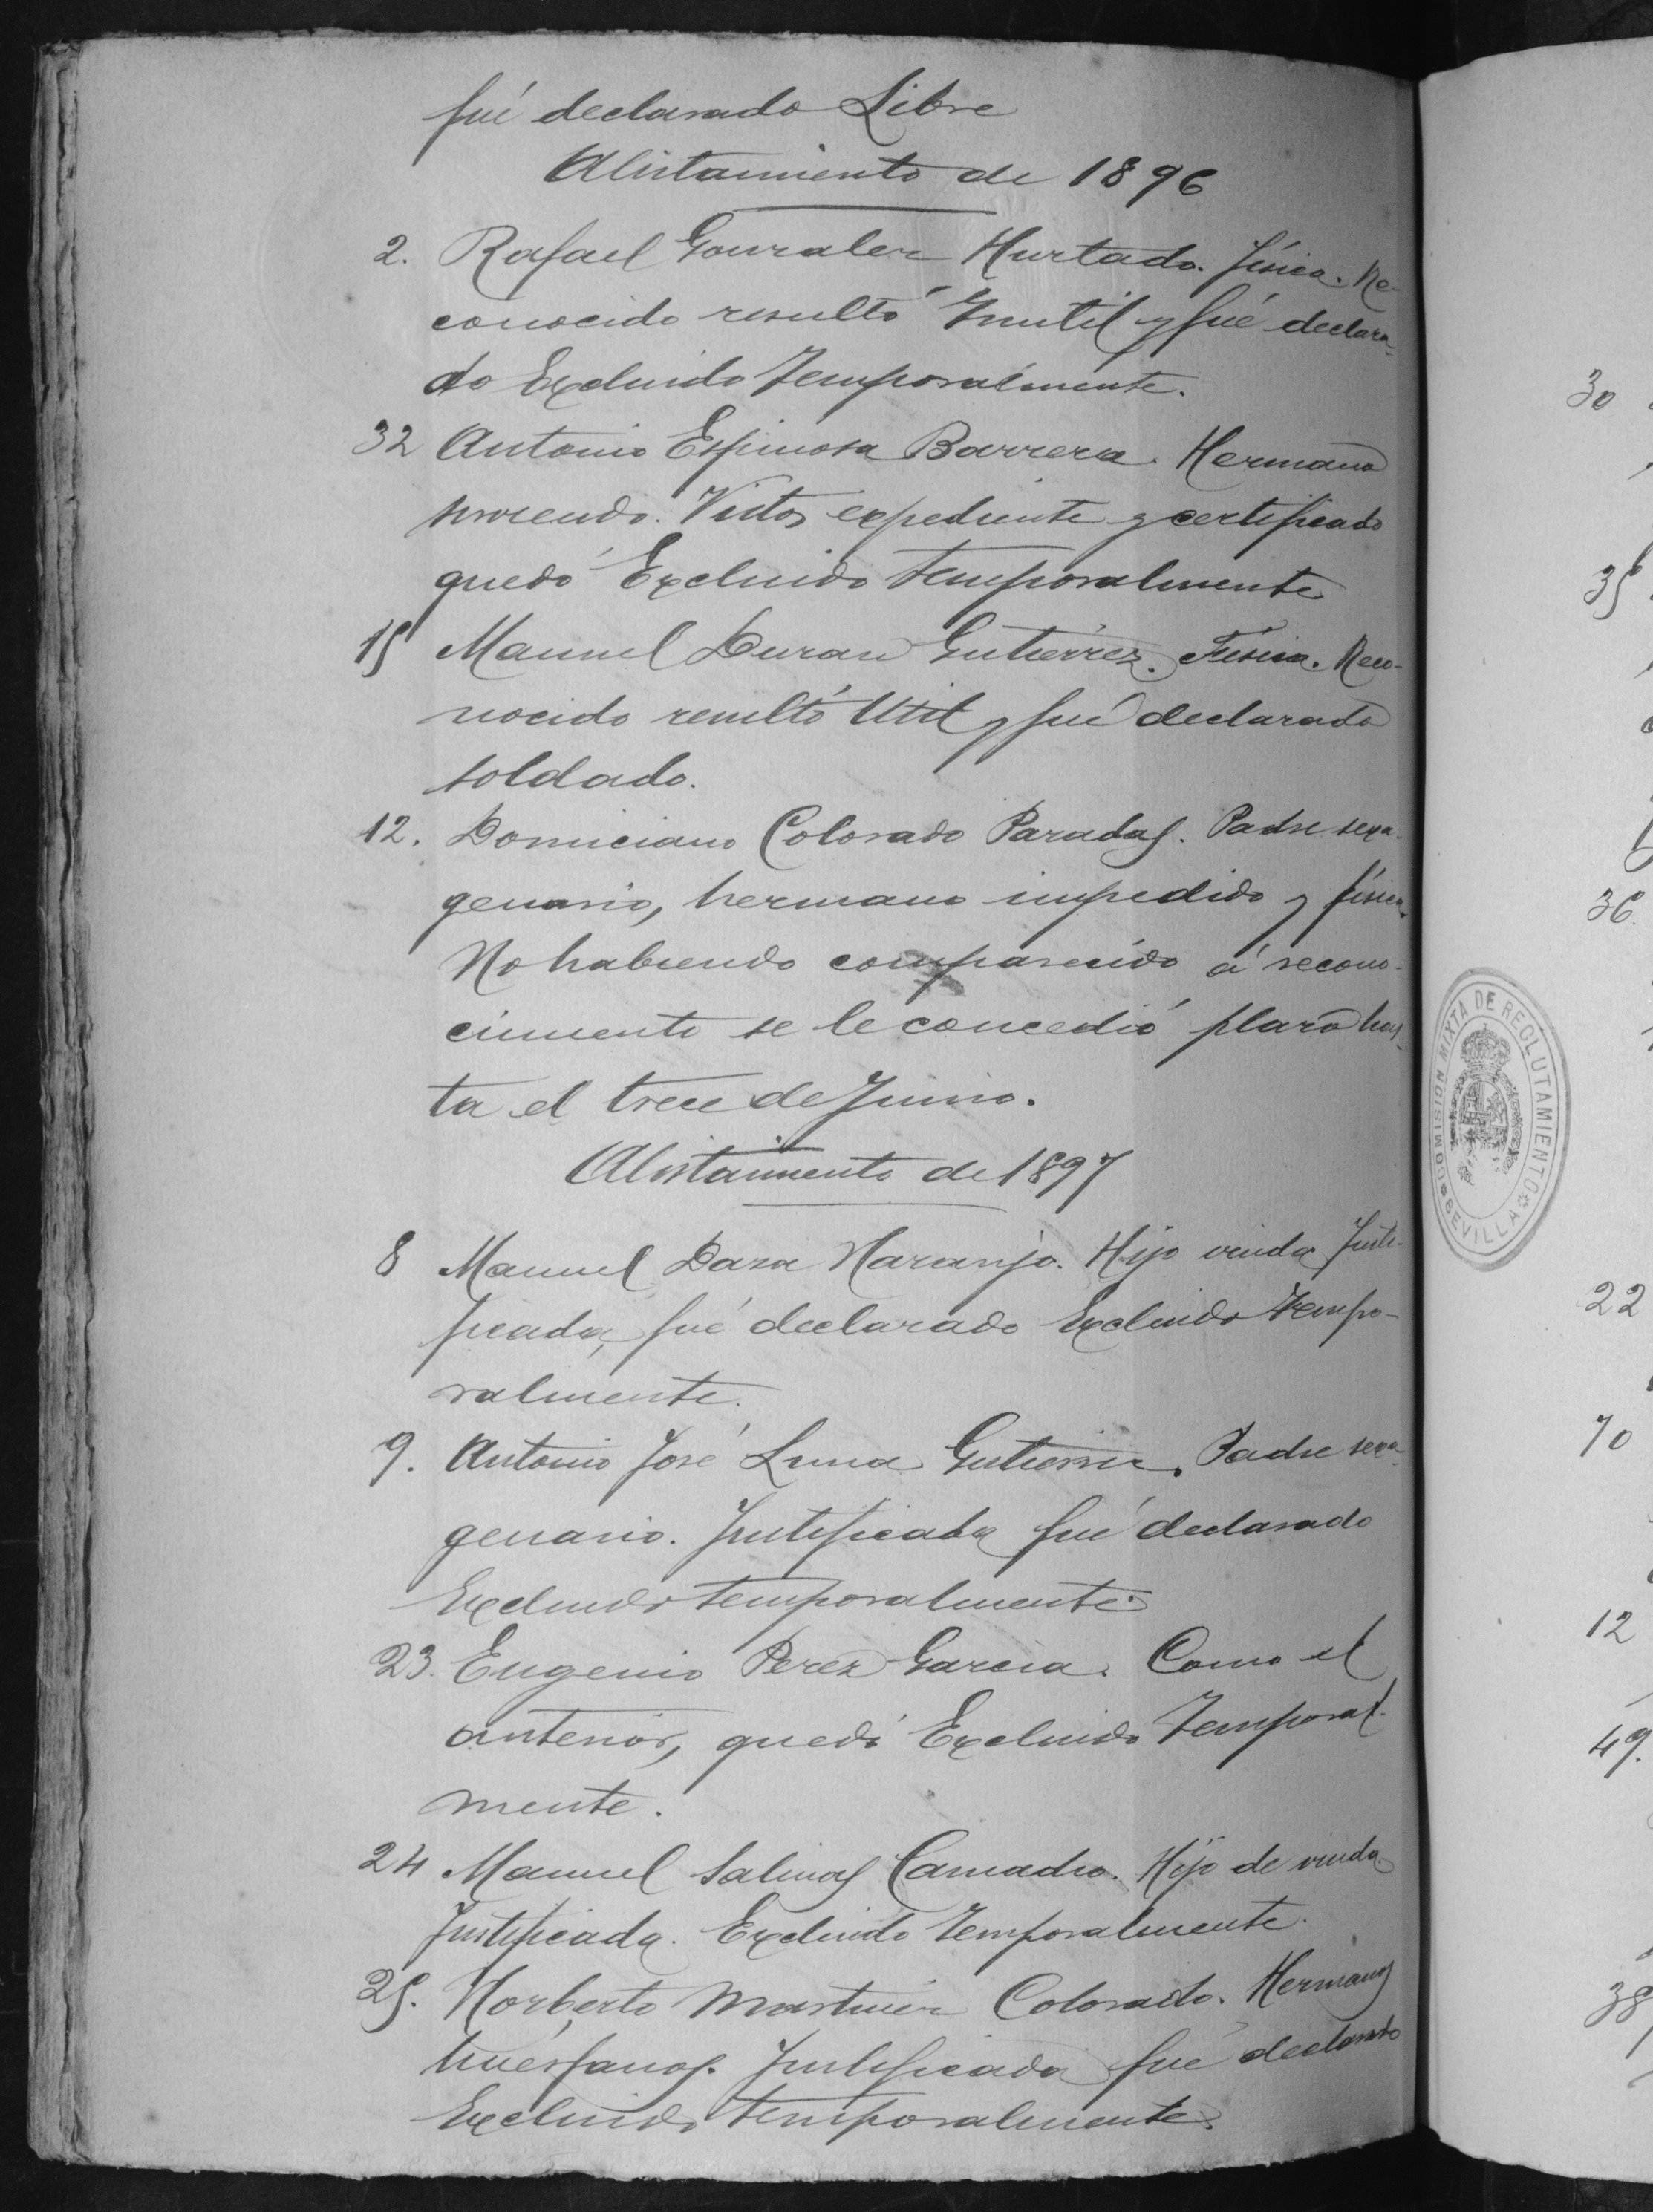 fué declarado Libre
Alistamiento de 1896
2. Rafael Gonzalez Hurtado. física. Re-
conocido resultó Inutil y fué declara-
do Excluido Temporalmente.
32 Antonio Espinosa Barrera. Hermano
sirviendo. Vistos expediente y certificado
quedó Excluido temporalmente
15 Manuel Duran Gutierrez. Física. Reco-
nocido resultó Util y fué declarado
soldado.
12. Domiciano Colorado Paradas. Padre sexa-
genario, hermano impedido y física.
No habiendo comparecido á recono-
cimiento se le concedió plazo has-
ta el trece de Junio.
Alistamiento de 1897
8 Manuel Daza Naranjo. Hijo viuda Justi-
ficada, fué declarado Excluido Tempo-
ralmente.
9. Antonio José Luna Gutierrez. Padre sexa-
genario. Justificada fué declarado
Excluido temporalmente.
23. Eugenio Perez Garcia. Como el
anterior, quedó Excluido Temporal-
mente.
24 Manuel Salinas Camadro. Hijo de viuda
Justificada. Excluido Temporalmente.
25. Norberto Martinez Colorado. Hermanos
huérfanos. Justificada fué declarado
Excluido temporalmente.
30
35
36.
COMISION MIXTA DE RECLUTAMIENTO
SEVILLA
22
70
12
49.
38